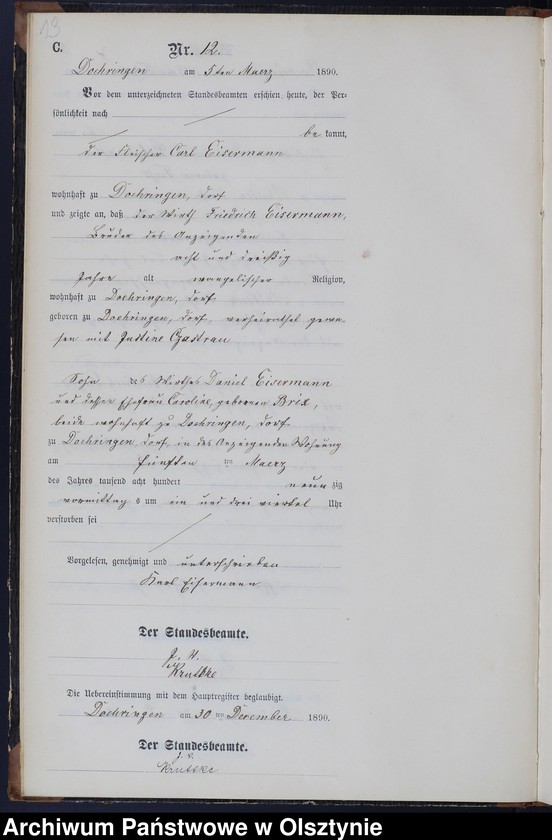 13
C.
Nr. 12.
Doehringen am 5ten Maerz 1890.
Vor dem unterzeichneten Standesbeamten erschien heute, der Per-
sönlichkeit nach
be kannt,
der Fleischer Carl Eisermann
wohnhaft zu Doehringen, Dorf
und zeigte an, daß der Wirth Friedrich Eisermann,
Bruder des Anzeigenden
acht und dreißig
Jahre alt evangelischer Religion,
wohnhaft zu Doehringen, Dorf
geboren zu Doehringen, Dorf, verheirathet gewe-
sen mit Justine Czastrau
Sohn des Wirthes Daniel Eisermann
und dessen Ehefrau Caroline, geborenen Brix,
beide wohnhaft zu Doehringen, Dorf
zu Doehringen, Dorf, in des Anzeigenden Wohnung
am fünften ten Maerz
des Jahres tausend acht hundert neun zig
vormittag s um ein und drei viertel Uhr
verstorben sei
Vorgelesen, genehmigt und unterschrieben
Karl Eisermann
Der Standesbeamte.
Krutzke
Die Uebereinstimmung mit dem Hauptregister beglaubigt.
Doehringen am 30 ten December 1890.
Der Standesbeamte.
J. V.
Krutzke
Archiwum Państwowe w Olsztynie